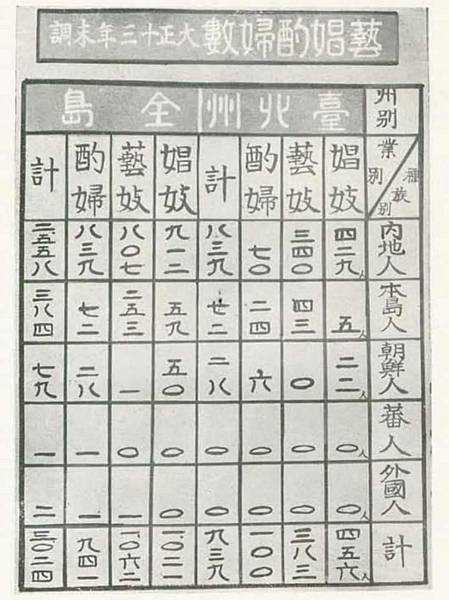 藝娼酌婦數 大正十三年末調
州別 臺北州 全島
業別 種族別 娼妓 藝妓 酌婦 計 娼妓 藝妓 酌婦 計
内地人 四二九人 三四〇 七〇 八三九 九一二 八〇七 八三九 二.五五八
本島人 五人 四三 二四 七二 五九 二五三 七二 三八四
朝鮮人 二二人 〇 六 二八 五〇 一 二八 七九
蕃人 〇人 〇 〇 〇 〇 〇 一 一
外國人 〇人 〇 〇 〇 〇 一 一 二
計 四五六人 三八三 一〇〇 九三九 一.〇二一 一.〇六二 九四一 三.〇二四